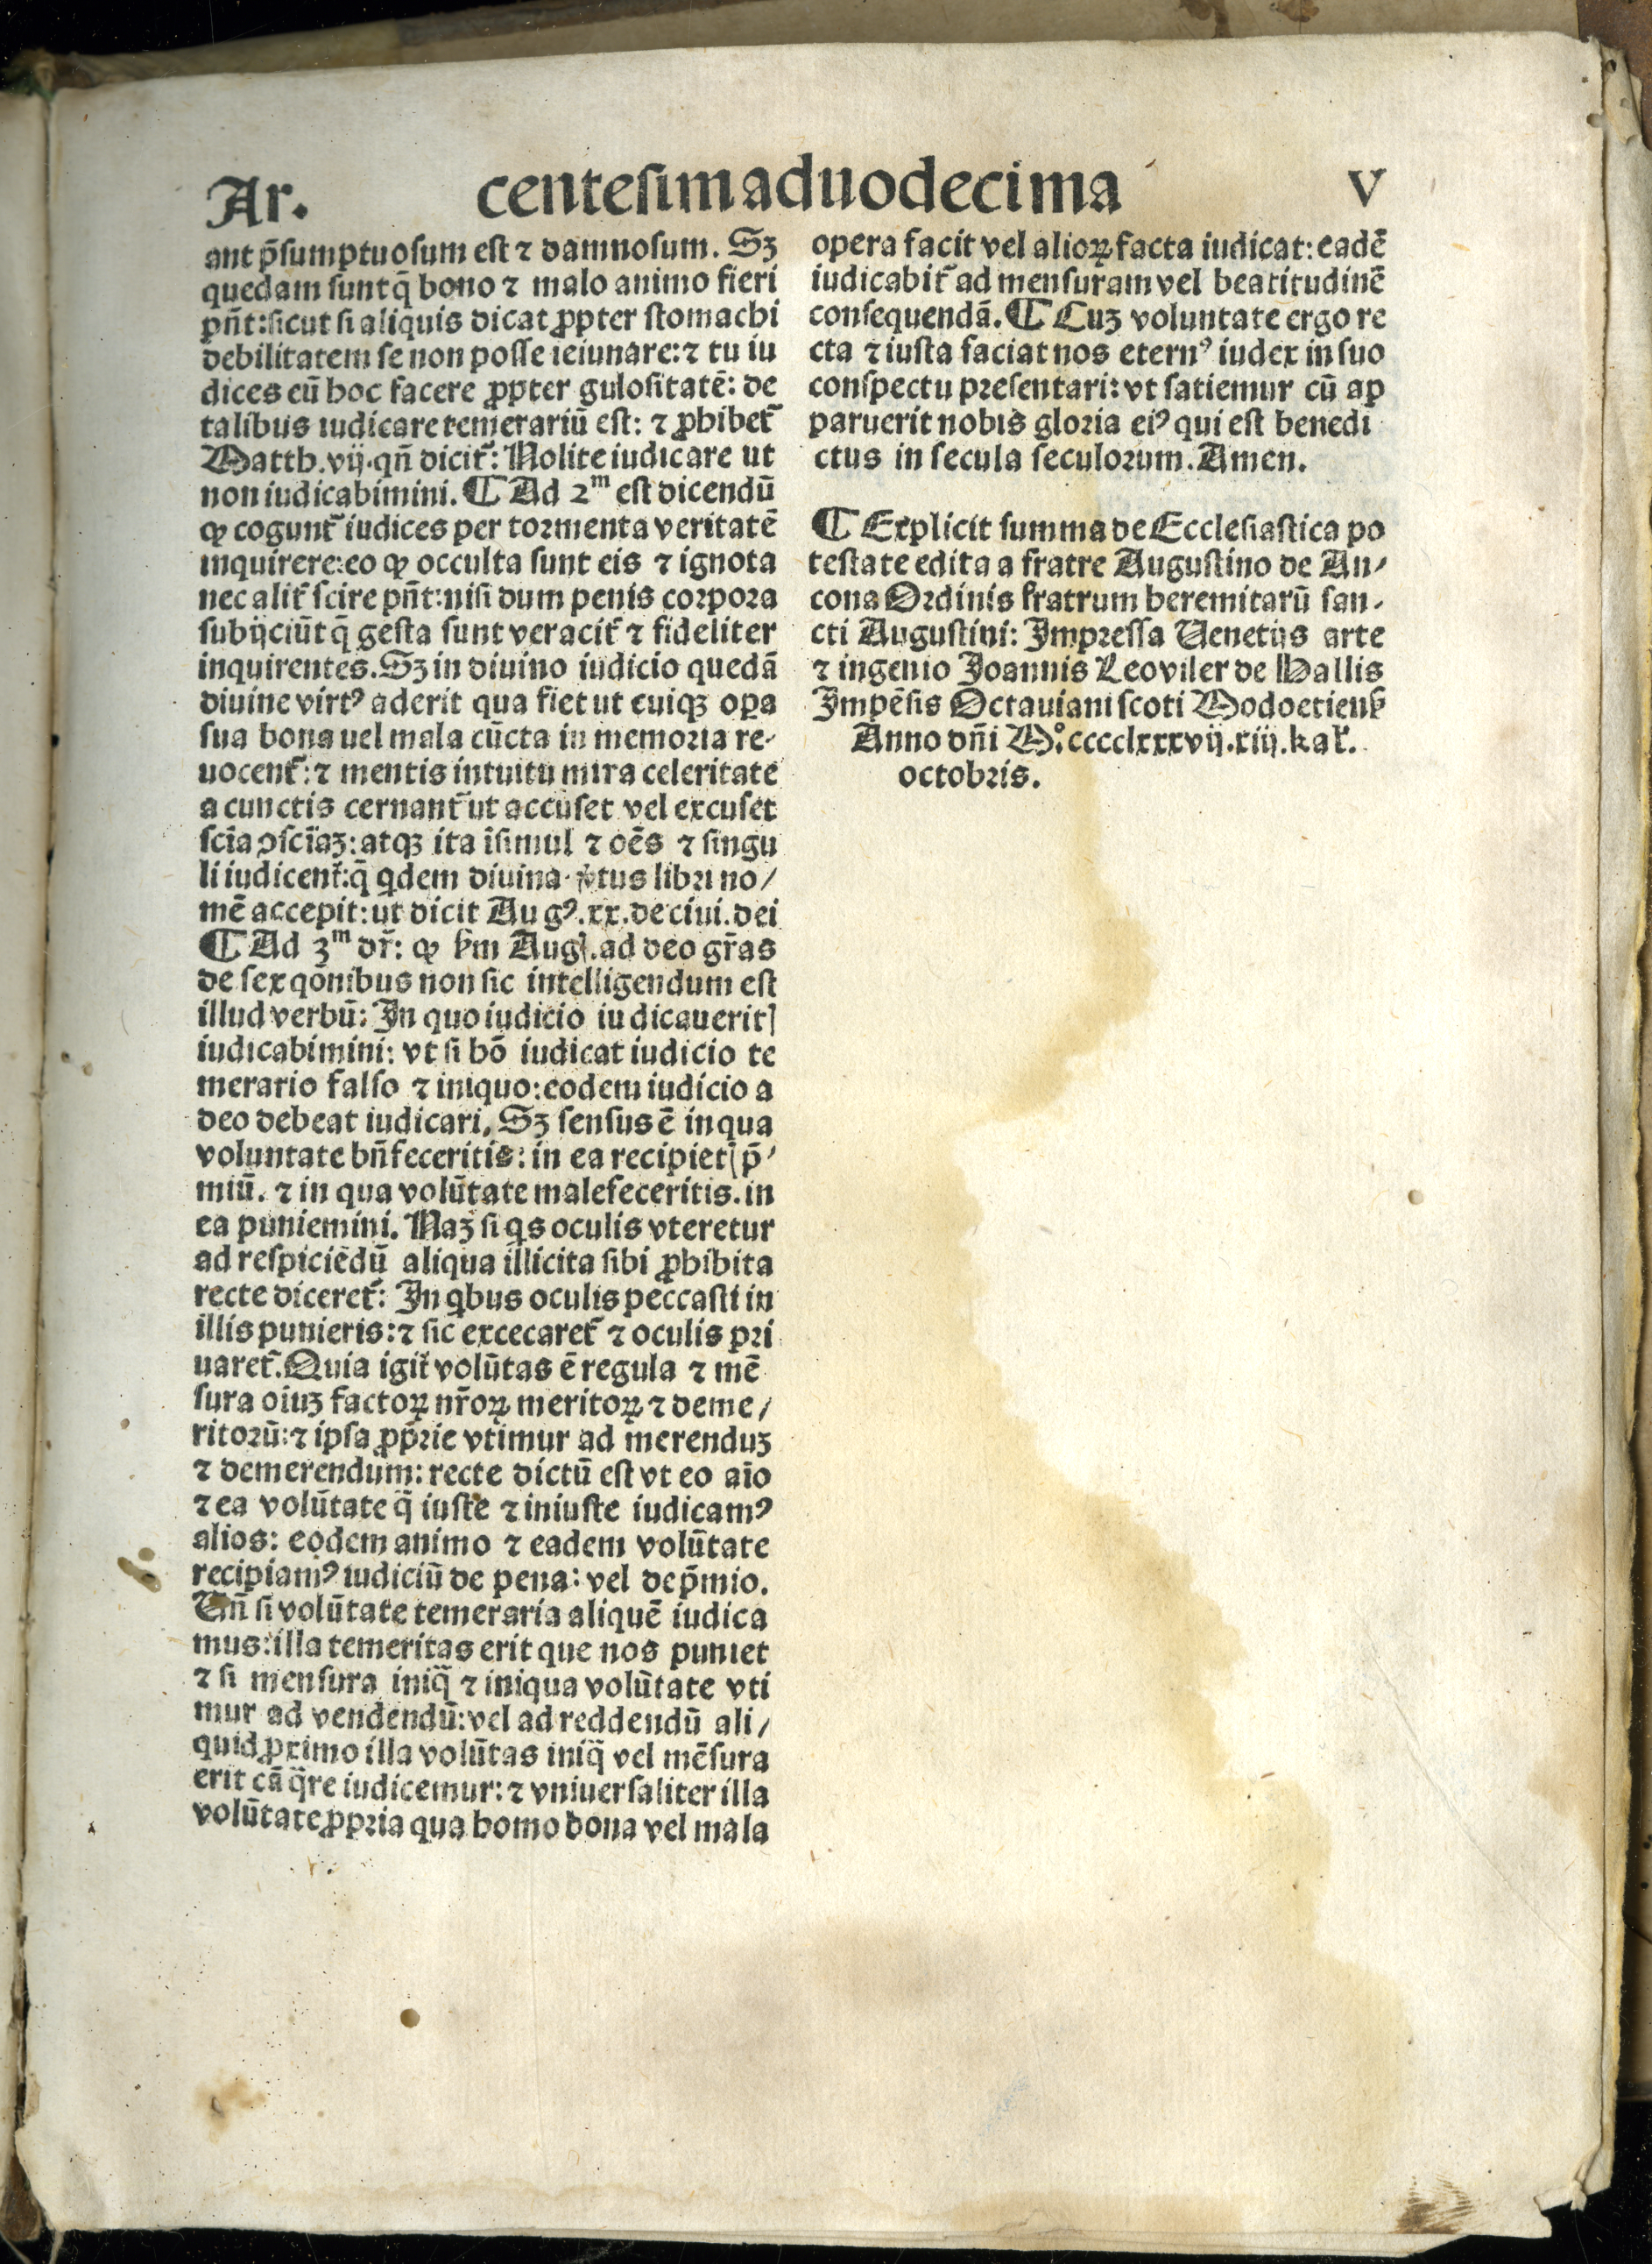 Ar. centesimaduodecima V
ant p̄sumptuosum est ⁊ damnosum. Sꝫ
quedam sunt q̄ bono ⁊ malo animo fieri
pn̄t: sicut si aliquis dicat ꝓpter stomachi
debilitatem se non posse ieiunare: ⁊ tu iu
dices eū hoc facere ꝓpter gulositatē: de
talibus iudicare temerariū est: ⁊ ꝓhibet᷑
Matth. vij. qn̄ dicit᷑: Nolite iudicare ut
non iudicabimini. ¶ Ad 2ᵐ est dicendū
ꝙ cogunt᷑ iudices per tormenta veritatē
inquirere: eo ꝙ occulta sunt eis ⁊ ignota
nec alit᷑ scire pn̄t: nisi dum penis corpora
subijciūt q̄ gesta sunt veracit᷑ ⁊ fideliter
inquirentes. Sꝫ in diuino iudicio quedā
diuine virtꝰ aderit qua fiet ut cuiqꝫ oꝑa
sua bona uel mala cūcta in memoria re-
uocent᷑: ⁊ mentis intuitu mira celeritate
a cunctis cernant᷑ ut accuset vel excuset
scīa ↄscīaꝫ: atqꝫ ita īsimul ⁊ oēs ⁊ singu
li iudicent᷑: q̄ qdem diuina tus libri no/
mē accepit: ut dicit Augꝰ. xx. de ciui. dei
¶ Ad 3ᵐ dr̄: ꝙ ẜm Aug. ad deo gr̄as
de sex qōnibus non sic intelligendum est
illud verbū: In quo iudicio iudicauerit
iudicabimini: vt si hō iudicat iudicio te
merario falso ⁊ iniquo: eodem iudicio a
deo debeat iudicari, Sꝫ sensus ē in qua
voluntate bn̄feceritis: in ea recipiet p̄-
miū. ⁊ in qua volūtate malefeceritis. in
ea puniemini. Naꝫ si qs oculis vteretur
ad respiciēdū aliqua illicita sibi ꝓhibita
recte diceret᷑: In qbus oculis peccasti in
illis punieris: ⁊ sic excecaret᷑ ⁊ oculis pri
uaret᷑. Quia igit᷑ volūtas ē regula ⁊ mē
sura oiuꝫ factoꝝ nr̄oꝝ meritoꝝ ⁊ deme/
ritorū: ⁊ ipsa ꝓp̄rie vtimur ad merenduꝫ
⁊ demerendum: recte dictū est vt eo aīo
⁊ ea volūtate q̄ iuste ⁊ iniuste iudicamꝰ
alios: eodem animo ⁊ eadem volūtate
recipiamꝰ iudiciū de pena: vel de p̄mio.
Vn̄ si volūtate temeraria aliquē iudica
mus: illa temeritas erit que nos puniet
⁊ si mensura iniq̄ ⁊ iniqua volūtate vti
mur ad vendendū: vel ad reddendū ali/
quid ꝓximo illa volūtas iniq̄ vel mēsura
erit cā q̄re iudicemur: ⁊ vniuersaliter illa
volūtate ꝓpria qua homo bona vel mala
opera facit vel alioꝝ facta iudicat: eadē
iudicabit᷑ ad mensuram vel beatitudinē
consequendā. ¶ Cuꝫ voluntate ergo re
cta ⁊ iusta faciat nos eternꝰ iudex in suo
conspectu presentari: vt satiemur cū ap
paruerit nobis gloria eiꝰ qui est benedi
ctus in secula seculorum. Amen.
¶ Explicit summa de Ecclesiastica po
testate edita a fratre Augustino de An/
cona Ordinis fratrum heremitarū san-
cti Augustini: Impressa Uenetijs arte
⁊ ingenio Joannis Leoviler de Hallis
Impēsis Octauiani scoti Modoetienẜ
Anno dn̄i M°.cccclxxxvij. xiij. kal᷑.
octobris.